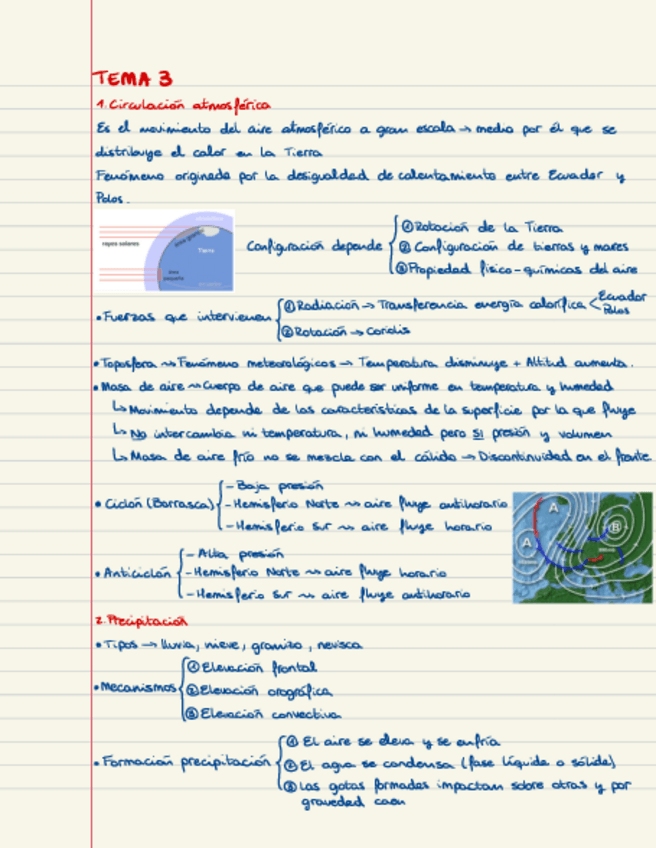 TEMA 3
1. Circulación atmosférica
Es el movimiento del aire atmosférico a gran escala → medio por el que se
distribuye el calor en la Tierra
Fenómeno originado por la desigualdad de calentamiento entre Ecuador y
Polos.
rayos solares
área grande
Tierra
área pequeña
atmósfera
Configuración depende
① Rotación de la Tierra
② Configuración de tierras y mares
③ Propiedad físico-químicas del aire
• Fuerzas que intervienen
① Radiación → Transferencia energía calorífica < Ecuador
Polos
② Rotación → Coriolis
• Toposfera ⇝ Fenómeno meteorológicos → Temperatura disminuye + Altitud aumenta.
• Masa de aire ⇝ Cuerpo de aire que puede ser uniforme en temperatura y humedad
↳ Movimiento depende de las características de la superficie por la que fluye
↳ No intercambia ni temperatura, ni humedad pero sí presión y volumen
↳ Masa de aire frío no se mezcla con el cálido → Discontinuidad en el frente
• Ciclón (Borrasca)
- Baja presión
- Hemisferio Norte ⇝ aire fluye antihorario
- Hemisferio Sur ⇝ aire fluye horario
A
B
A
• Anticiclón
- Alta presión
- Hemisferio Norte ⇝ aire fluye horario
- Hemisferio Sur ⇝ aire fluye antihorario
2. Precipitación
• Tipos → lluvia, nieve, granizo, nevisca
• Mecanismos
① Elevación frontal
② Elevación orográfica
③ Elevación convectiva
• Formación precipitación
① El aire se eleva y se enfría
② El agua se condensa (fase líquida o sólida)
③ Las gotas formadas impactan sobre otras y por
gravedad caen